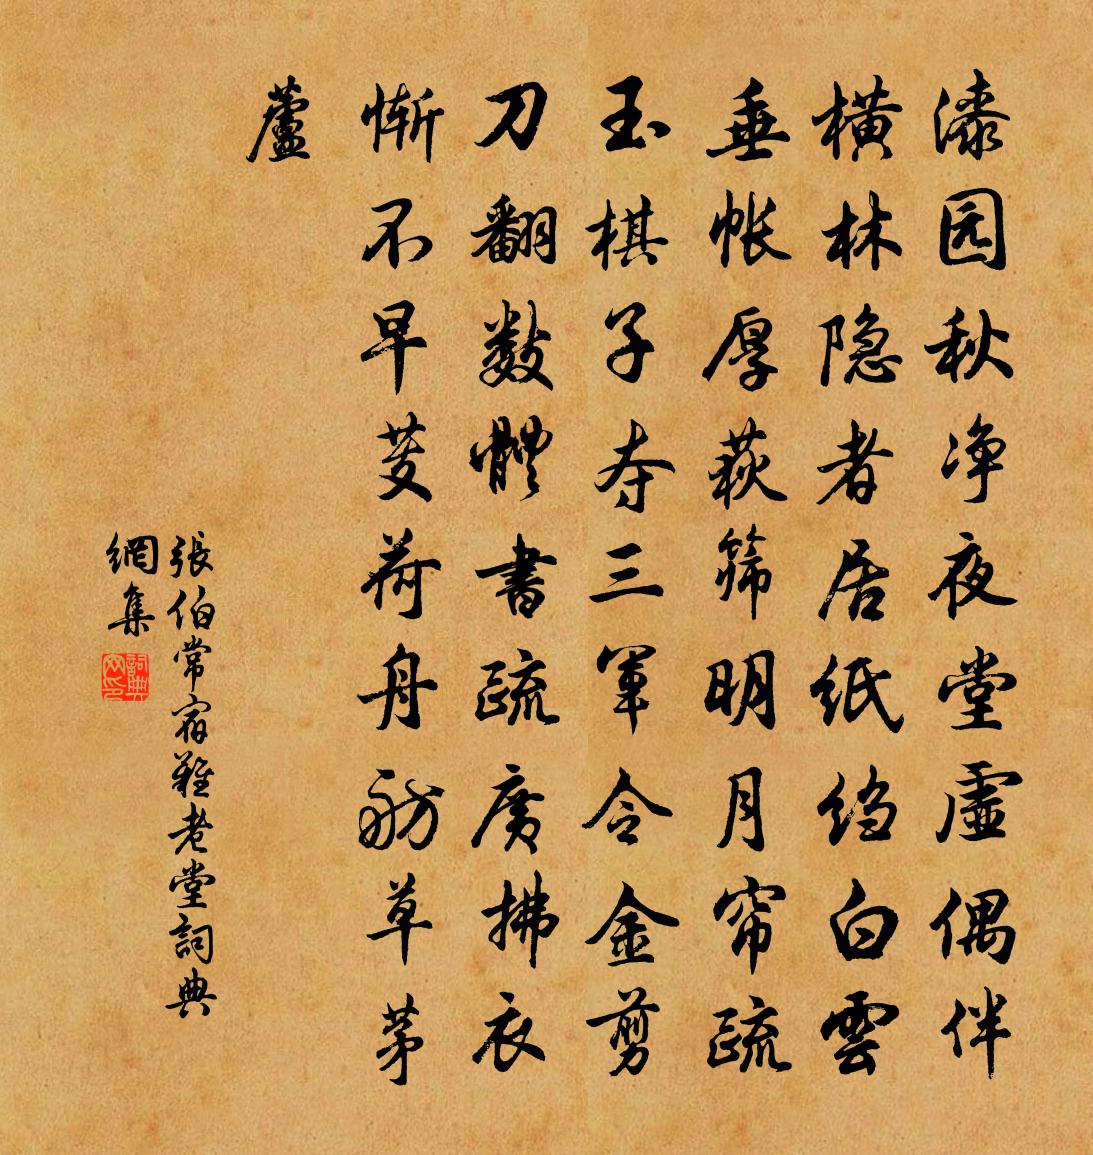 漆园秋净夜堂虛偶伴
横林隐者居纸绉白雲
垂帐厚萩筛明月帘疏
玉棋子夺三军令金剪
刀翻數體書疏廣拂衣
惭不早芰荷舟舫草茅
蘆
張伯常宿難老堂詞典
網集
詞典
网印